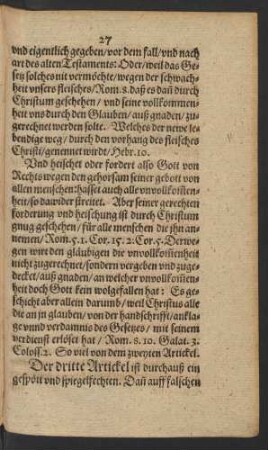 27
vnd eigentlich gegeben/vor dem fall/vnd nach
art des alten Testaments: Oder/weil das Ge-
setz solches nit vermöchte/wegen der schwach-
heit vnsers fleisches/Rom. 8. daß es dañ durch
Christum geschehen/ vnd seine vollkommen-
heit vns durch den Glauben/auß gnaden/zu-
gerechnet werden solte. Welches der newe le-
bendige weg/durch den vorhang des fleisches
Christi/genennet wirdt/Hebr. 10.
Vnd heischet oder fordert also Gott von
Rechts wegen den gehorsam seiner gebott von
allen menschen: hasset auch alle vnvollkom̃en-
heit/so dawider streitet. Aber seiner gerechten
forderung vnd heischung ist durch Christum
gnug geschehen/für alle menschen die ihn an-
nemen/Rom. 5. 1. Cor. 15. 2. Cor. 5. Derwe-
gen wirt den gläubigen die vnvollkom̃enheit
nicht zugerechnet/sondern vergeben vnd zuge-
decket/auß gnaden/an welcher vnvollkom̃en-
heit doch Gott kein wolgefallen hat: Es ge-
schicht aber allein darumb/weil Christus alle
die an jn glauben/von der handschrifft/ankla-
ge vnnd verdamnis des Gesetzes/ mit seinem
verdienst erlöset hat/ Rom. 8. 10. Galat. 3.
Coloss. 2. So viel von dem zweyten Artickel.
Der dritte Artickel ist durchauß ein
gespött vnd spiegelfechten. Dañ auff falschen